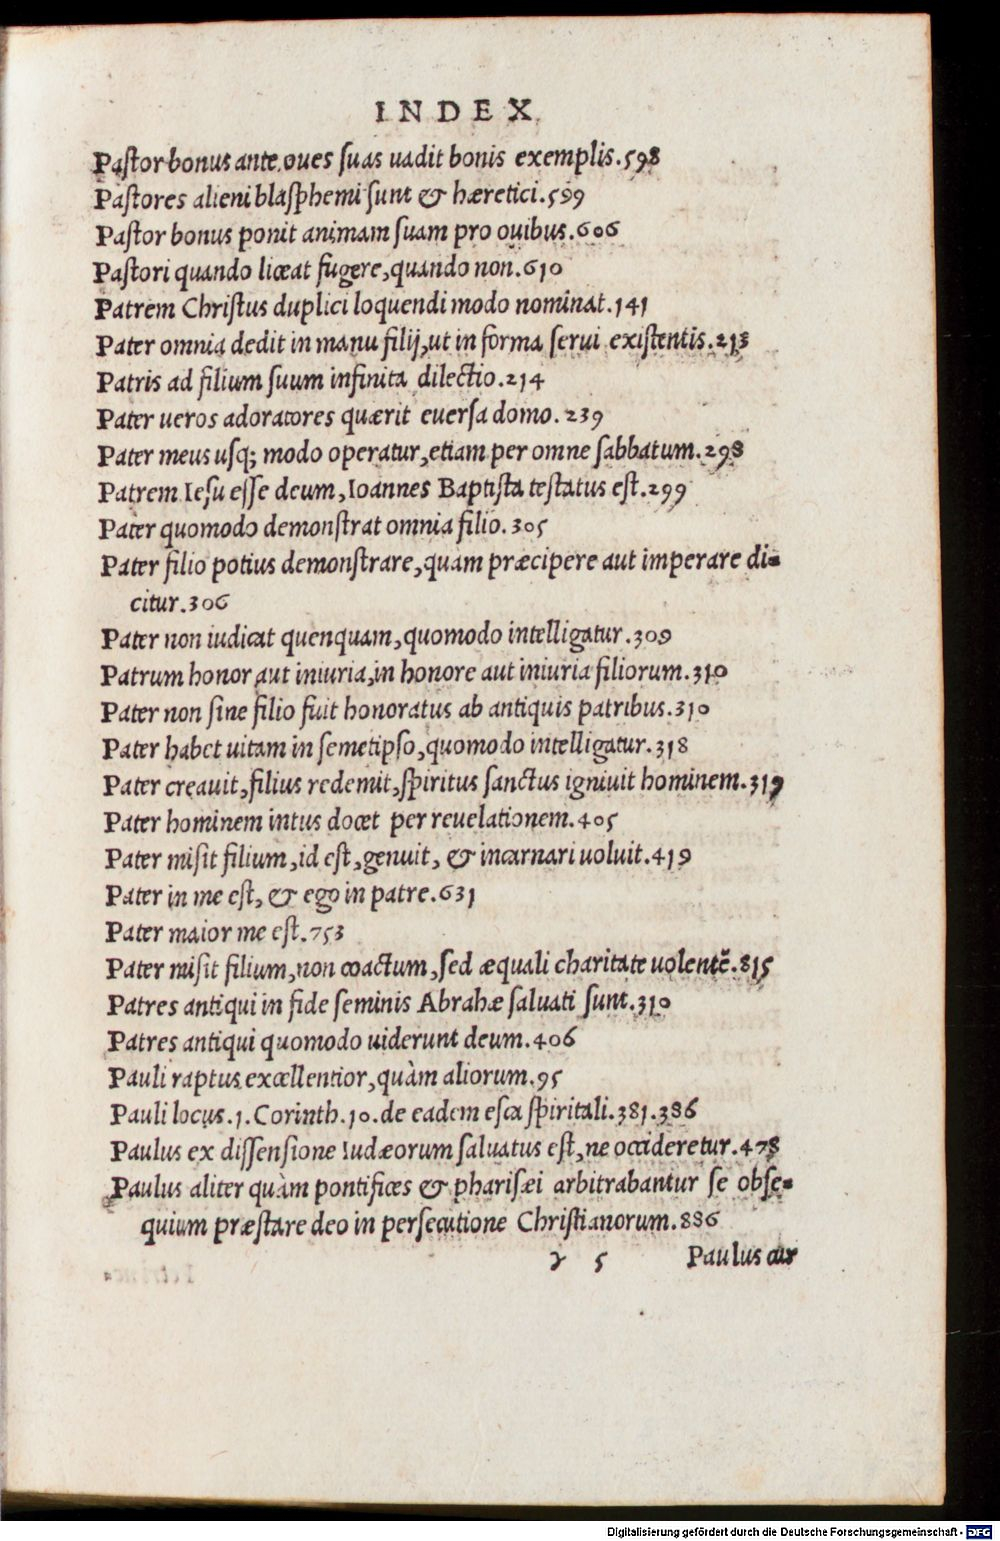 INDEX
Pastor bonus ante oues suas uadit bonis exemplis.598
Pastores alieni blasphemi sunt & hæretici.599
Pastor bonus ponit animam suam pro ouibus.606
Pastori quando liceat fugere,quando non.610
Patrem Christus duplici loquendi modo nominat.141
Pater omnia dedit in manu filij,ut in forma serui existentis.213
Patris ad filium suum infinita dilectio.214
Pater ueros adoratores quærit euersa domo.239
Pater meus usq; modo operatur,etiam per omne sabbatum.298
Patrem Iesu esse deum,Ioannes Baptista testatus est.299
Pater quomodo demonstrat omnia filio.305
Pater filio potius demonstrare,quam præcipere aut imperare di-
citur.306
Pater non iudicat quenquam,quomodo intelligatur.309
Patrum honor aut iniuria,in honore aut iniuria filiorum.310
Pater non sine filio fuit honoratus ab antiquis patribus.310
Pater habet uitam in semetipso,quomodo intelligatur.318
Pater creauit,filius redemit,spiritus sanctus igniuit hominem.319
Pater hominem intus docet per reuelationem.405
Pater misit filium,id est,genuit, & incarnari uoluit.419
Pater in me est, & ego in patre.631
Pater maior me est.753
Pater misit filium,non coactum,sed æquali charitate uolentẽ.815
Patres antiqui in fide seminis Abrahæ saluati sunt.310
Patres antiqui quomodo uiderunt deum.406
Pauli raptus excellentior,quàm aliorum.95
Pauli locus.1.Corinth.10.de eadem esca spiritali.381.386
Paulus ex dissensione Iudæorum saluatus est,ne occideretur.478
Paulus aliter quàm pontifices & pharisæi arbitrabantur se obse-
quium præstare deo in persecutione Christianorum.886
γ 5 Paulus cur
Digitalisierung gefördert durch die Deutsche Forschungsgemeinschaft - DFG